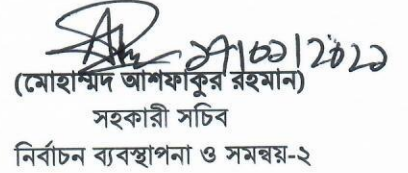 ২৭/০১/২০২১
(মোহাম্মদ আশফাকুর রহমান)
সহকারী সচিব
নির্বাচন ব্যবস্থাপনা ও সমন্বয়-২